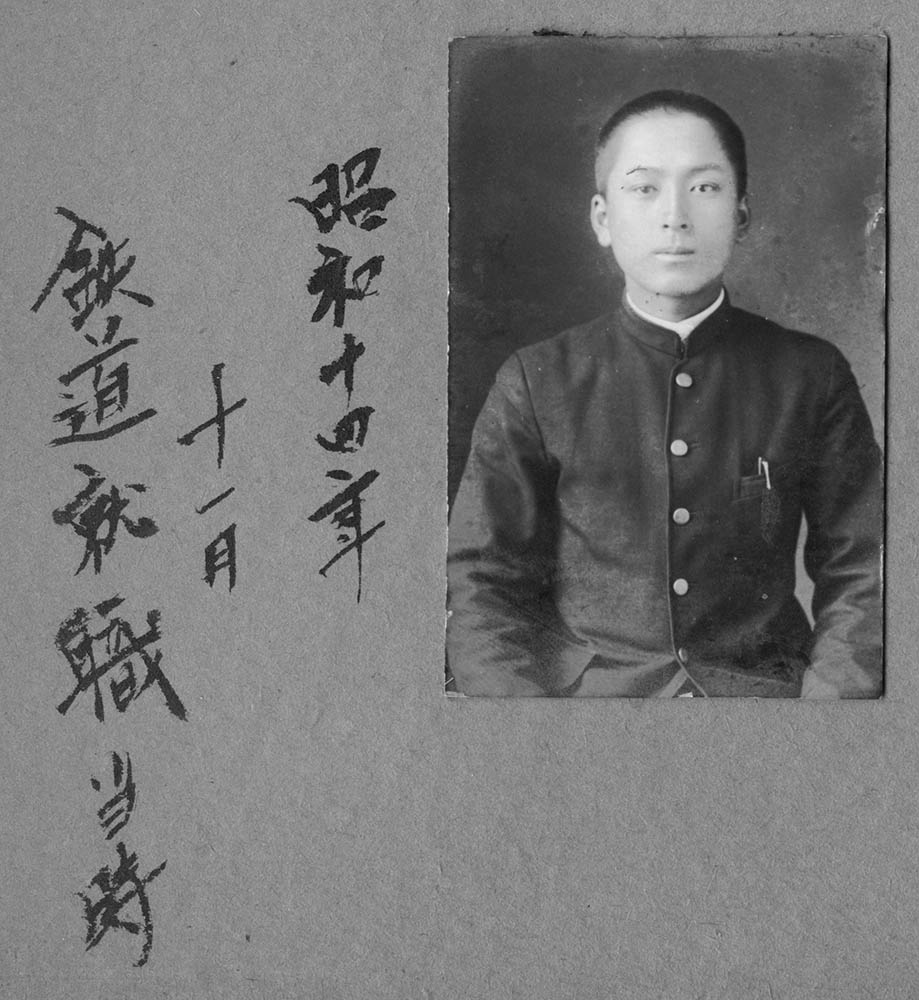 昭和十四年
十一月
鉄道就職当時